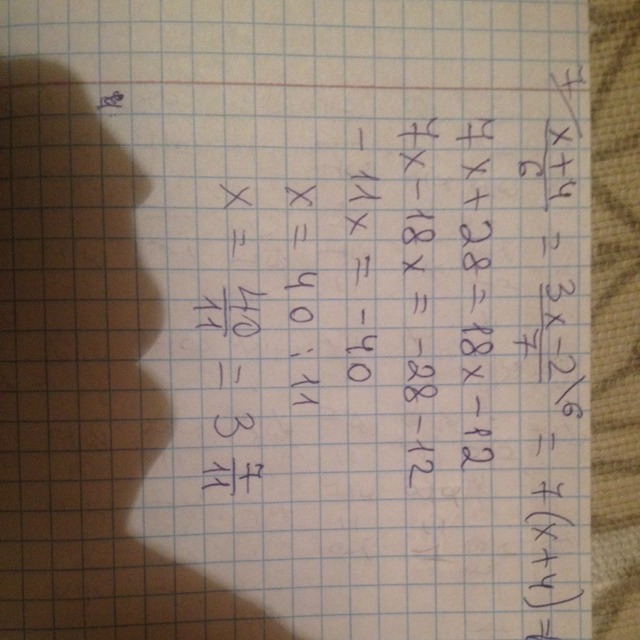 7/ (x+4)/6 = (3x-2)/7 \6 = 7(x+4) =
7x + 28 = 18x - 12
7x - 18x = -28 - 12
-11x = -40
x = 40 : 11
x = 40/11 = 3 7/11